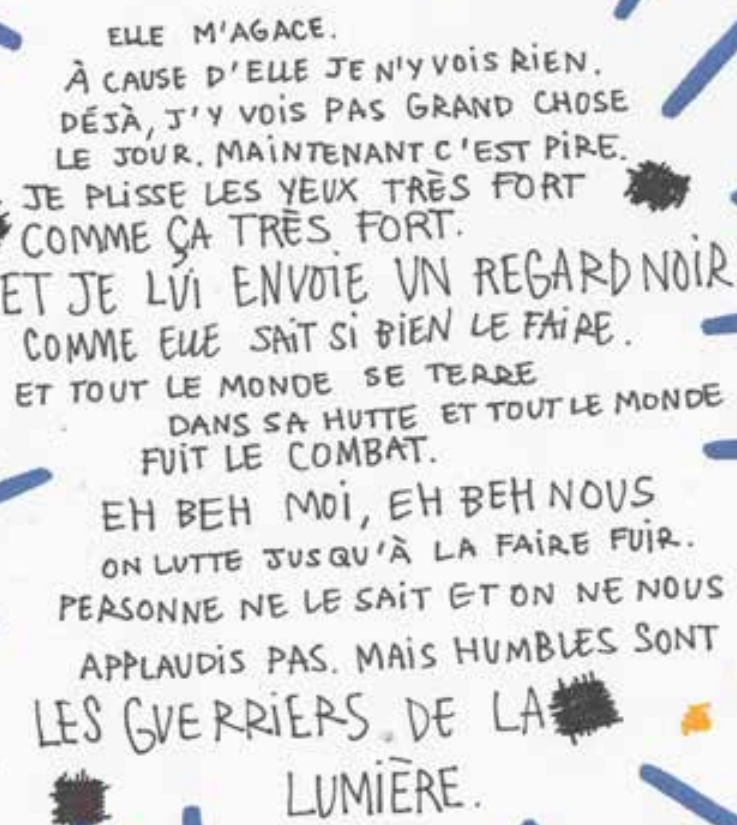 ELLE M'AGACE.
À CAUSE D'ELLE JE N'Y VOIS RIEN.
DÉJÀ, J'Y VOIS PAS GRAND CHOSE
LE JOUR. MAINTENANT C'EST PIRE.
JE PLISSE LES YEUX TRÈS FORT
COMME ÇA TRÈS FORT.
ET JE LUI ENVOIE UN REGARD NOIR
COMME ELLE SAIT SI BIEN LE FAIRE.
ET TOUT LE MONDE SE TERRE
DANS SA HUTTE ET TOUT LE MONDE
FUIT LE COMBAT.
EH BEH MOI, EH BEH NOUS
ON LUTTE JUSQU'À LA FAIRE FUIR.
PERSONNE NE LE SAIT ET ON NE NOUS
APPLAUDIS PAS. MAIS HUMBLES SONT
LES GUERRIERS DE LA
LUMIÈRE.